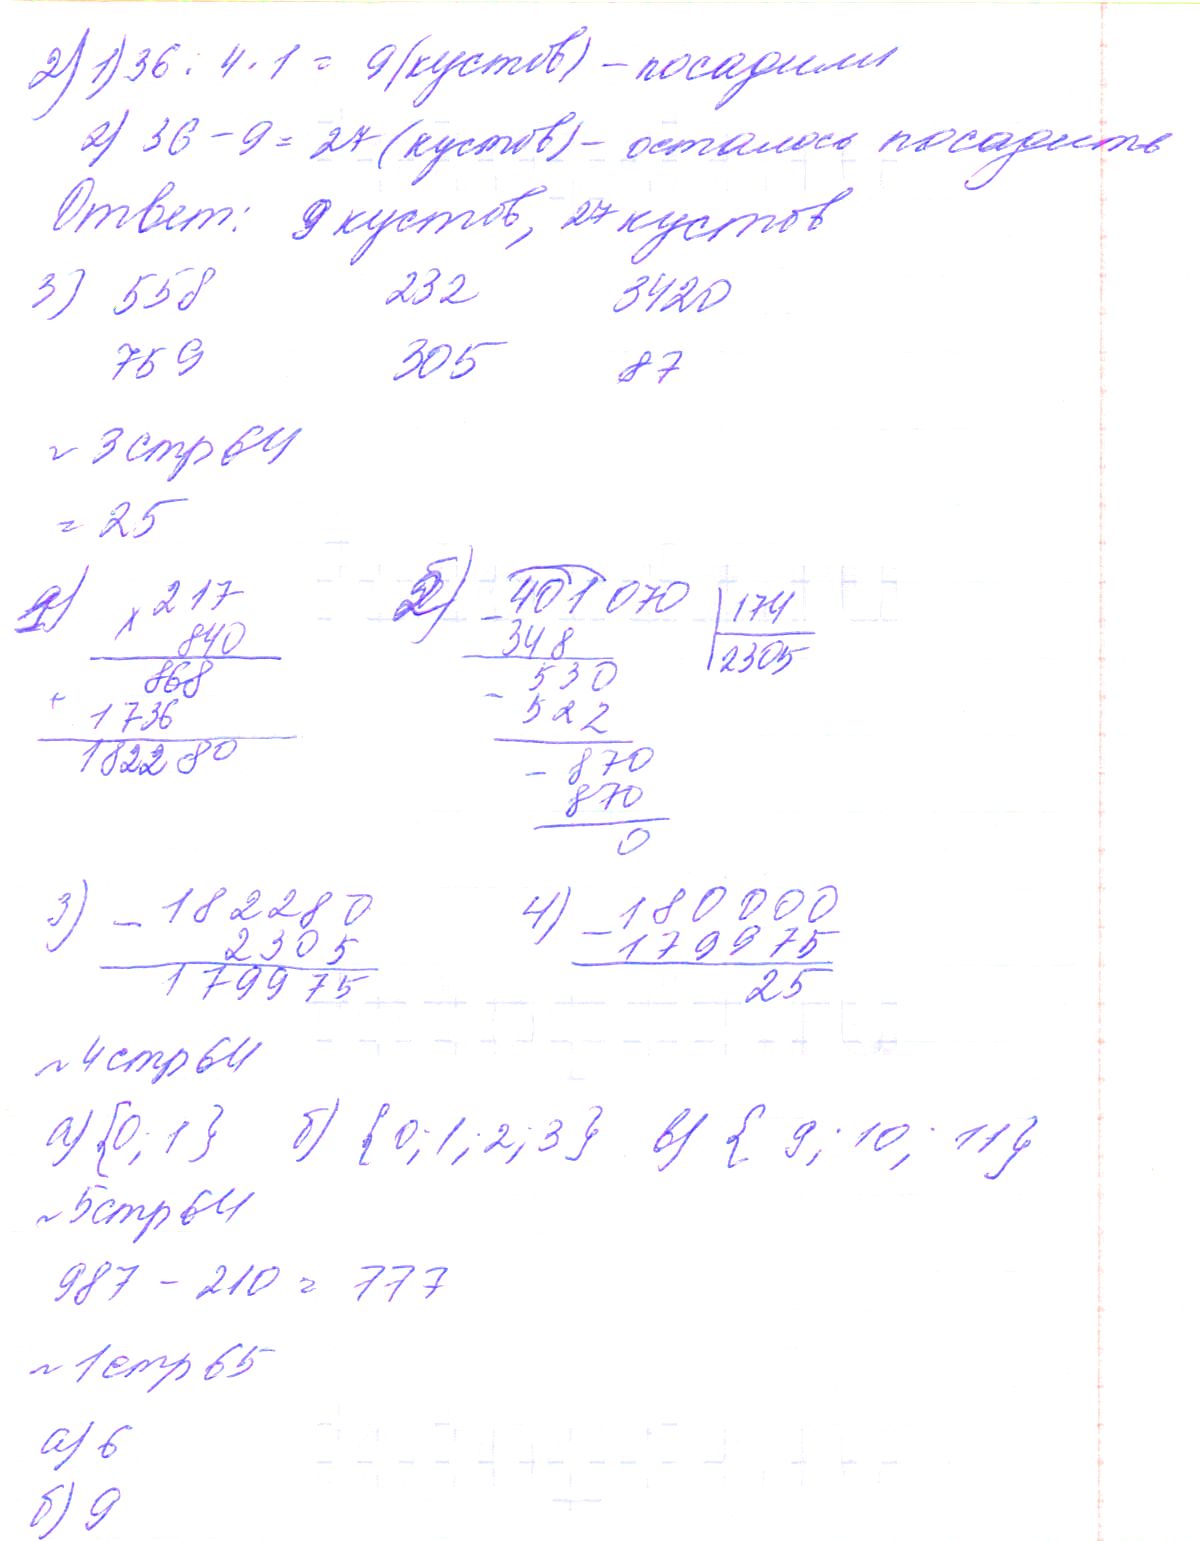 2) 1) 36 : 4 · 1 = 9 (кустов) – посадили
2) 36 – 9 = 27 (кустов) – осталось посадить
Ответ: 9 кустов, 27 кустов
3) 558 232 3420
759 305 87
~ 3 стр 64
= 25
1) 2)
× 217
840
868
+ 1736
182280
– 401070 | 174
348 2305
530
– 522
– 870
870
0
3) – 182280
2305
179975
4) – 180000
179975
25
~ 4 стр 64
а) {0; 1} б) {0; 1; 2; 3} в) {9; 10; 11}
~ 5 стр 64
987 – 210 = 777
~ 1 стр 65
а) 6
б) 9